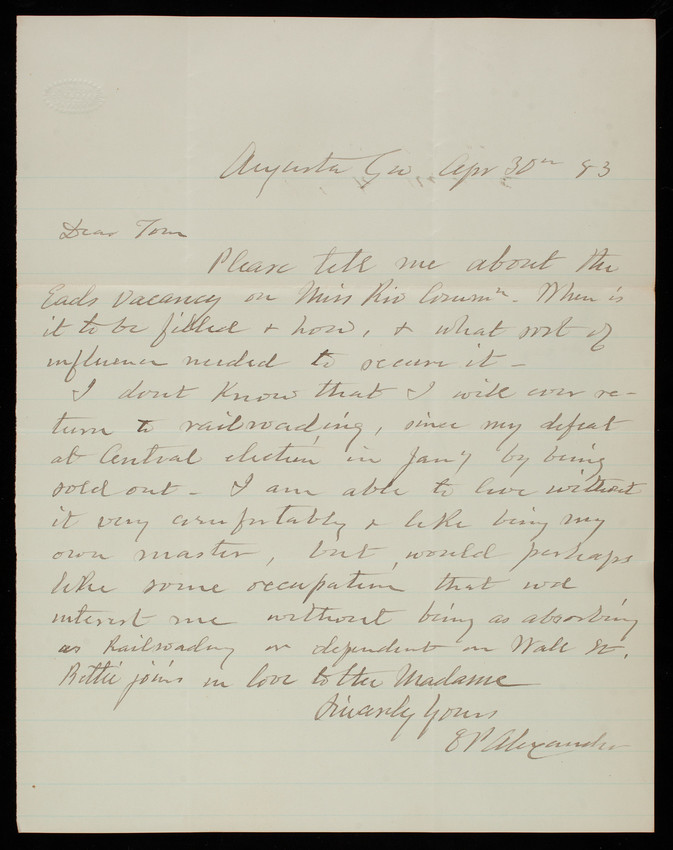 Augusta Ga Apr 30th 83
Dear Tom
Please tell me about the
Eads vacancy on Miss Riv Commn. When is
it to be filled & how, & what sort of
influence needed to secure it –
I dont know that I will ever re-
turn to railroading, since my defeat
at Central election in Jany by being
sold out – I am able to live without
it very comfortably & like being my
own master, but would perhaps
like some occupation that wd
interest me without being as absorbing
as Railroading or dependent on Wall St.
Bettie joins in love to the Madame
Sincerely Yours
EP Alexander